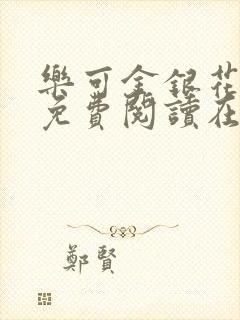 樂可金銀花
免費閱讀在
鄭賢